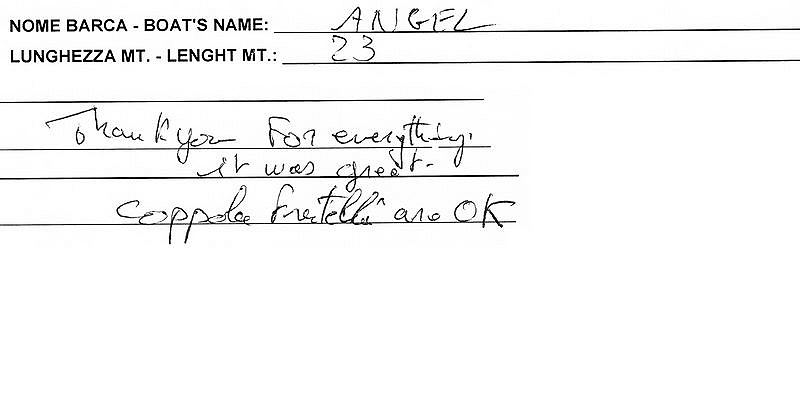 NOME BARCA - BOAT'S NAME: ANGEL
LUNGHEZZA MT. - LENGHT MT.: 23
Thank you For everything.
it was great.
Coppola Fratelli are OK